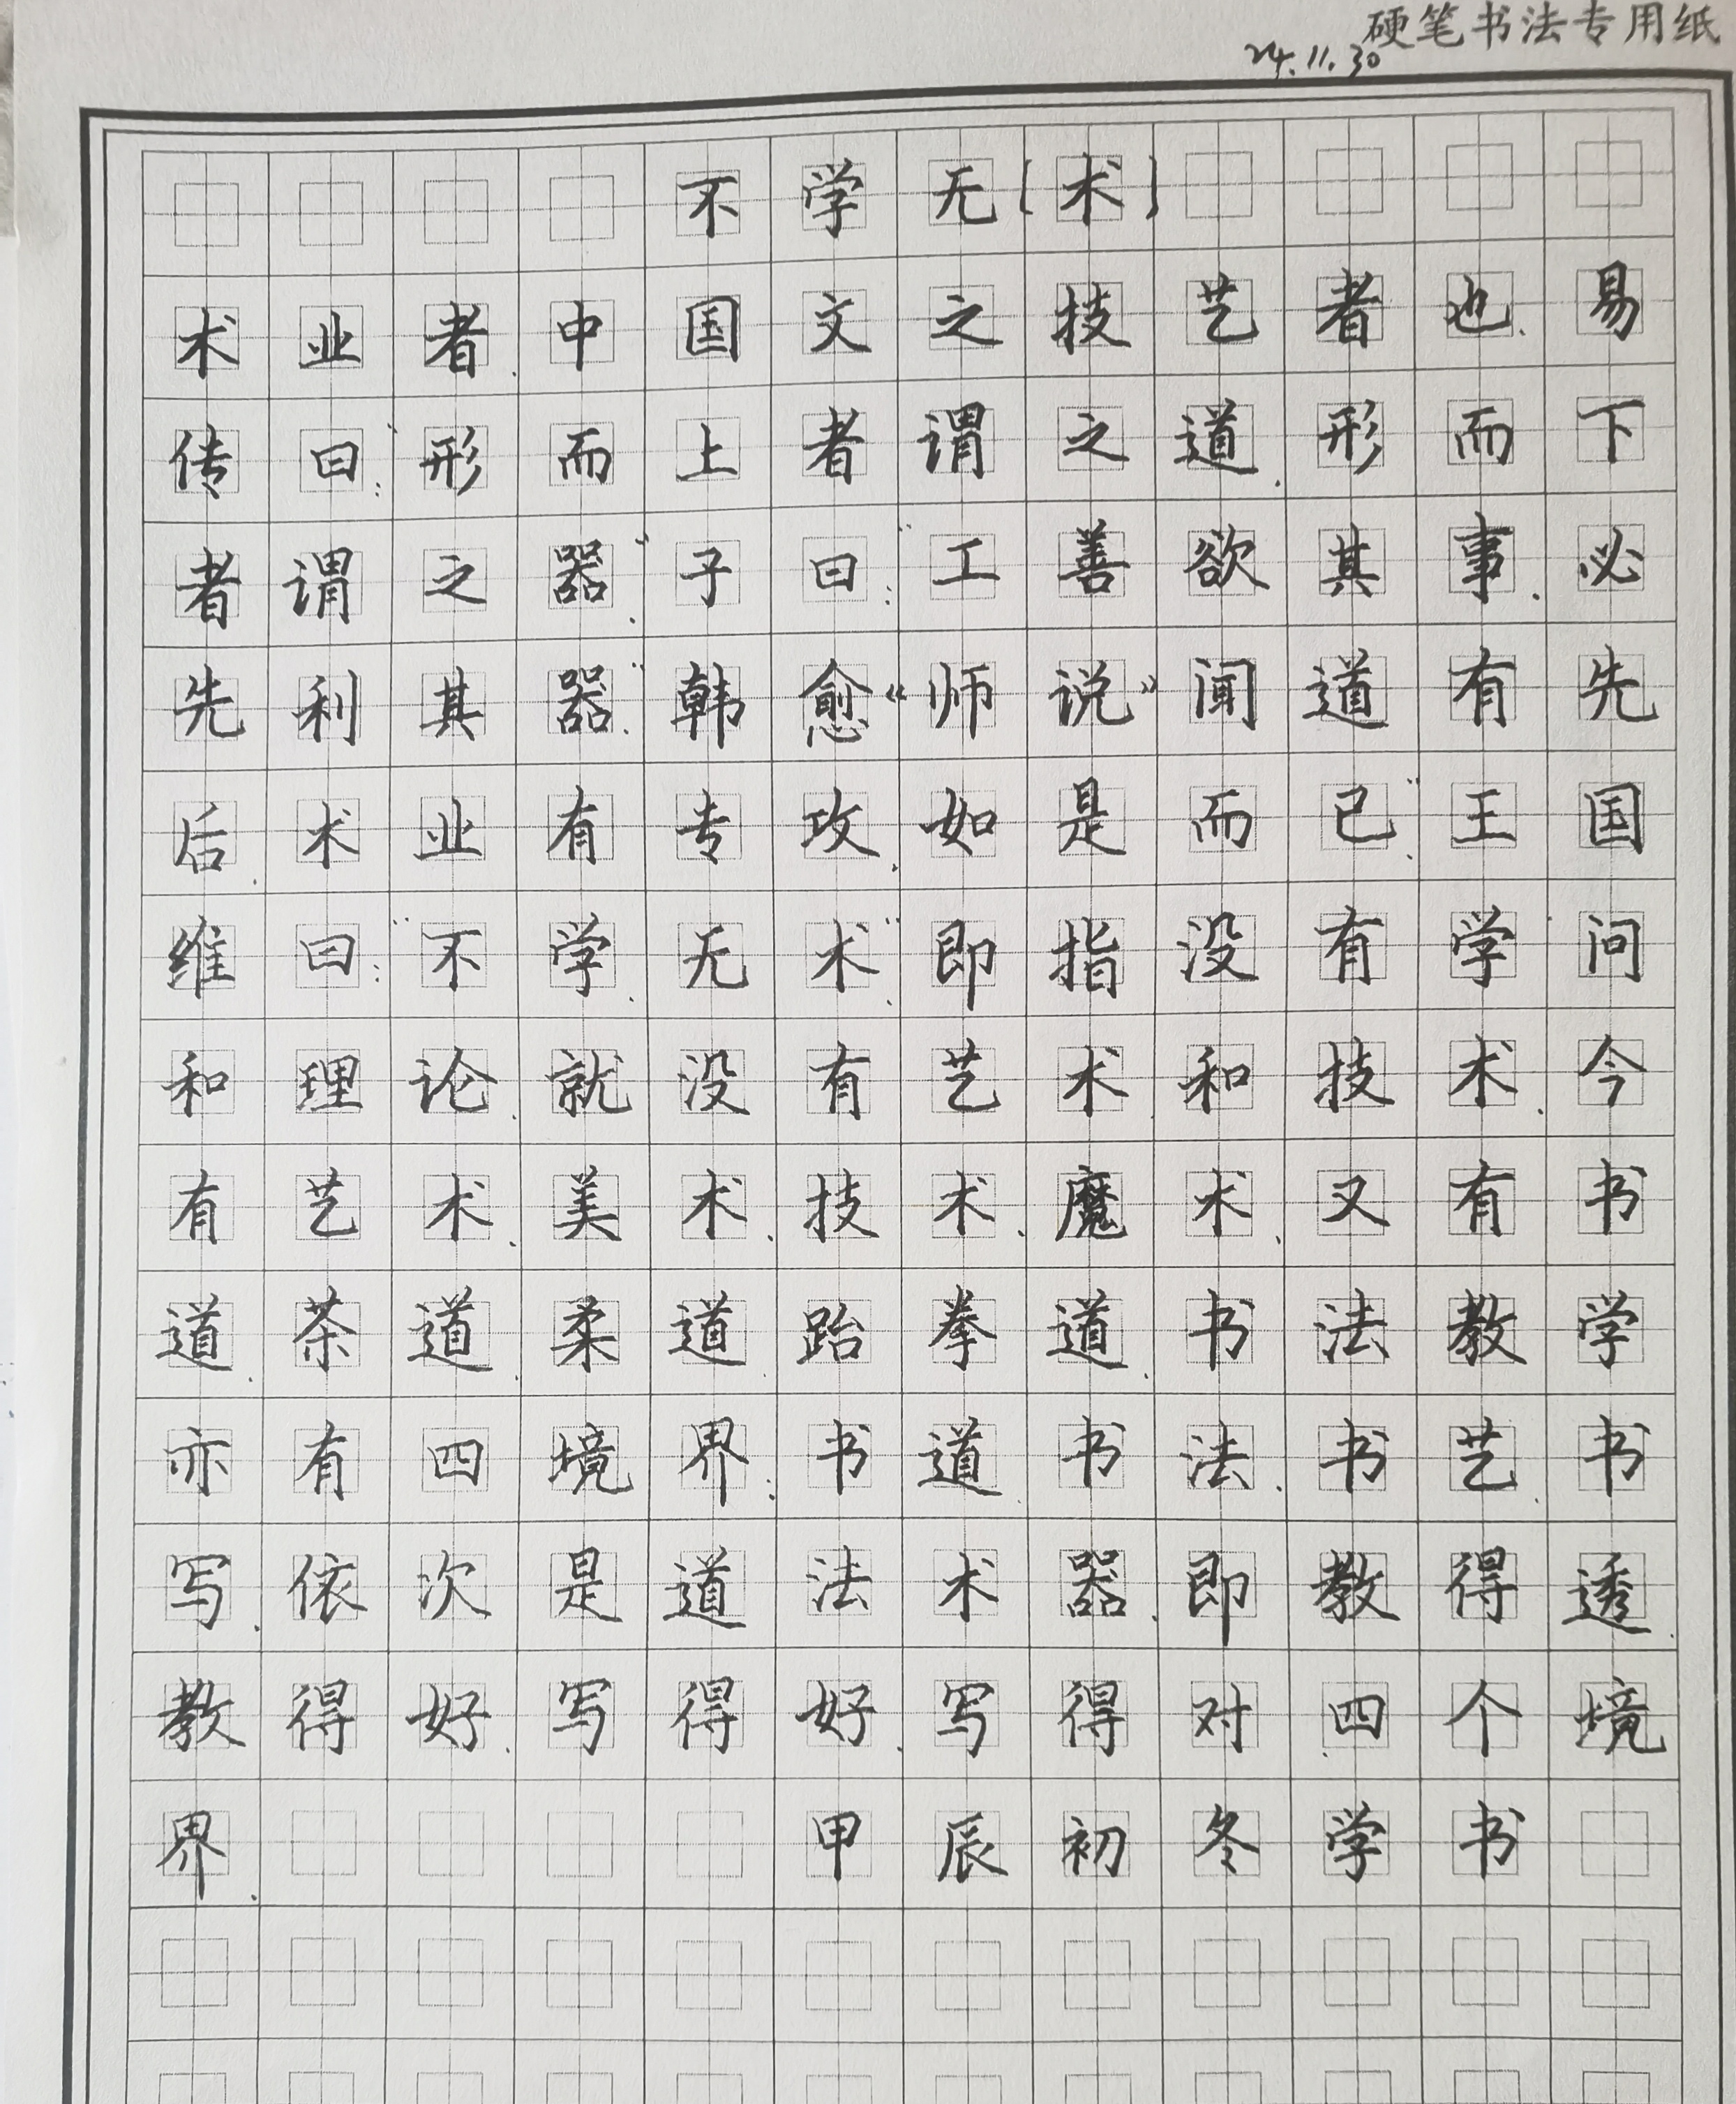 硬笔书法专用纸
24.11.30
不学无(术)
术业者.中国文之技艺者也.易
传曰:“形而上者谓之道.形而下
者谓之器”.子曰:“工善欲其事.必
先利其器”.韩愈《师说》闻道有先
后.术业有专攻.如是而已”.王国
维曰:“不学.无术”.即指没有学问
和理论.就没有艺术.和技术.今
有艺术、美术、技术、魔术、又有书
道.茶道.柔道.跆拳道.书法教学
亦有四境界:书道.书法.书艺.书
写.依次是道法术器.即教得透.
教得好.写得好.写得对.四个境
界.
甲辰初冬学书